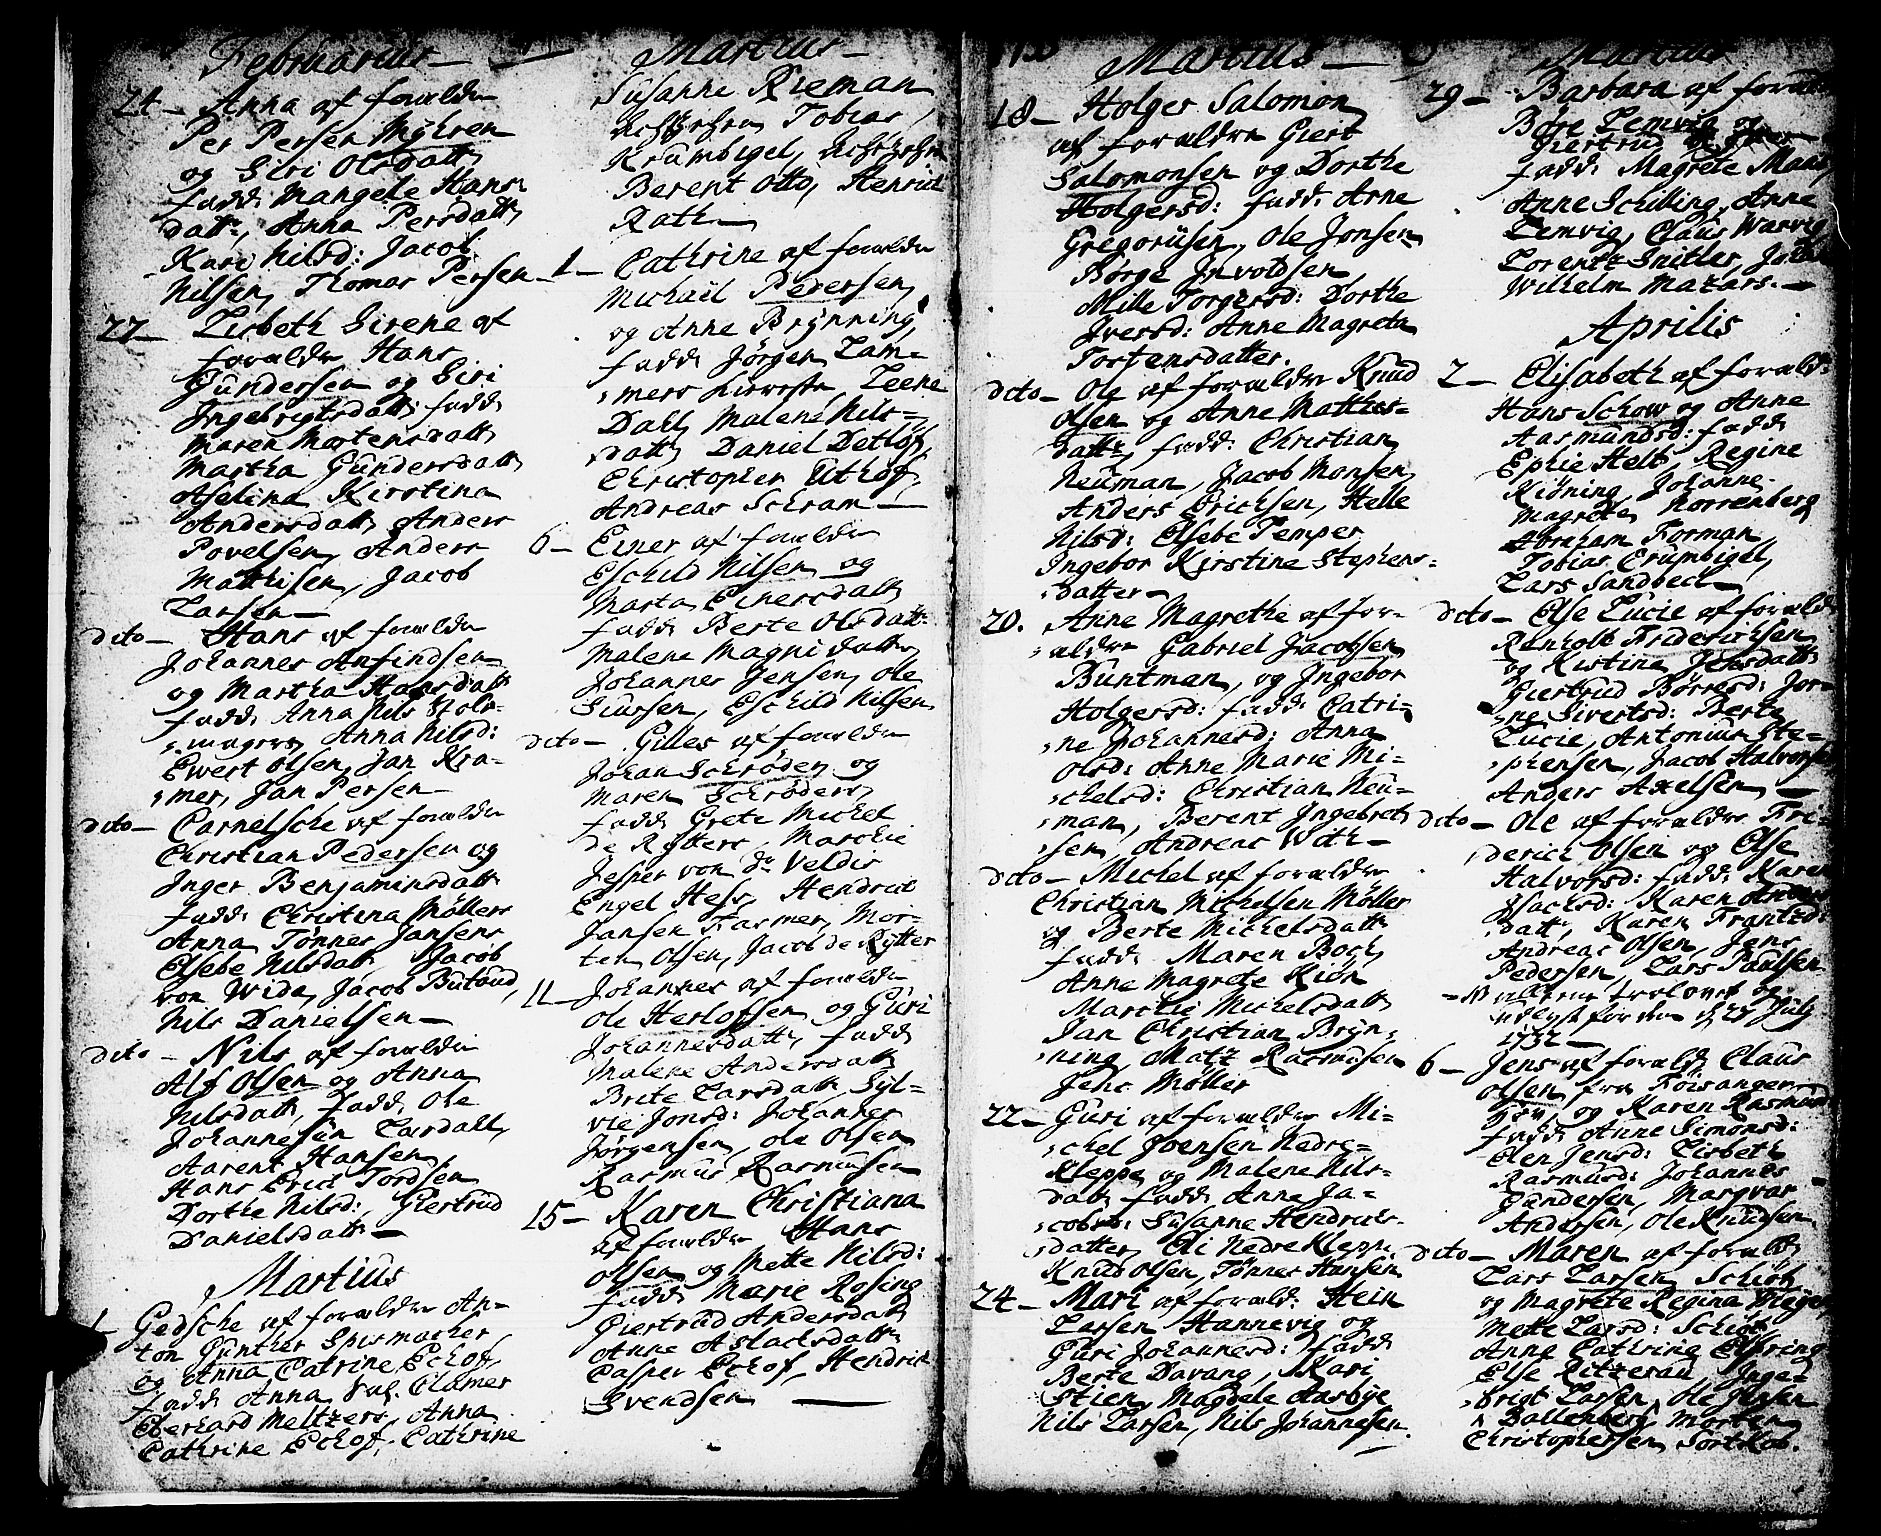 Februarius
24 - Anna af forældre
Per Persen Myhren
og Siri Olsdatt
fadd: Mangele Hans
datt, Anna Persdatt
Kari Nilsd: Jacob
Nilsen, Thomas Persen
27 - Lisbeth Sirene af
forældre Hans
Gundersen og Siri
Ingebrigtsdatt: fadd:
Maren Mortensdatt
Martha Gundersdatt
Aselina Kirstina
Andersdatt, Anders
Povelsen, Anders
Mathisen, Jacob
Larsen -
dito - Hans af forældre
Johannes Anfindsen
og Martha Hansdatt
fadd: Anna Nils
magers, Anna Nilsd:
Ewert Olsen, Jan Kra-
mer, Jan Persen -
dito - Carnelsche af forældre
Christian Pedersen og
Inger Benjaminsdatt
fadd: Christina Møllers
Anna Tønnes Jansens
Elsebe Nilsdatt, Jacob
von Wida, Jacob Butoud,
Nils Danielsen -
dito - Nils af forældre
Alf Olsen og Anna
Nilsdatt, fadd: Ole
Johannesen Lardall,
Aarent Hansen,
Hans Erich Tordsen
Dorthe Nilsd: Giertrud
Danielsdatt -
Martius
1 - Gedsche af forældre An-
ton Gunther Spormacher
og Anna Catrine Eckhof,
fadd: Anna Clamer
Eberhard Meltzers, Anna
Cathrine Eckhof, Cathrine
Martius -
Susanne Rieman
Tobias
Krumbigel,
Berent Otto, Henrich
Rath -
1 - Cathrine af forældre
Michaël Pedersen,
og Anne Brynning,
fadd: Jørgen Lam-
mers Leene
Dahl, Malene Nils-
datt, Daniel Detlof,
Christopher Uthof,
Andreas Schram -
6 - Einer af forældre
Eschild Nilsen og
Marta Einersdatt
fadd: Berte Olsdatt:
Malene Magnidatt
Johannes Jensen, Ole
Siursen, Eschild Nilsen
dito - Gilles af forældre
Johan Schrøder og
Maren Schrøders
fadd: Grete Michel
de Rytters, Marchie
Jesper von dr Veldis
Engel Hess, Hendrich
Jansen Fasmer, Mor-
ten Olsen, Jacob de Rytter
11 - Johannes af forældre
Ole Herlofsen og Guri
Johannesdatt, fadd:
Malene Andersdatt
Brite Larsdatt Syl-
vie Jonsd: Johannes
Jørgensen, Ole Olsen
Rasmus Rasmusen
15 - Karen Christiana
af forældre Hans
Olsen og Mette Nilsd:
fadd: Marie Rosing
Giertrud Andersdatt
Anne Aslachsdatt
Casper Eckhof, Hendrich
Svendsen -
Martius -
18 - Holger Salomon
af forældre Giert
Salomonsen og Dorthe
Holgersd: fadd: Arne
Gregoriusen, Ole Jonsen
Børge Involdsen
Mille Torgersd: Dorthe
Iversd: Anne Magreta
Tortensdatter.
dito - Ole af forældre Knud
Olsen og Anne Mathis-
datt, fadd: Christian
Neuman, Jacob Monsen
Anders Erichsen, Helle
Nilsd: Elsebe Temper
Ingebor Kirstine Stephens-
datter -
20. Anne Magrethe af for-
ældre Gabriel Jacobsen
Buntman, og Ingebor
Holgersd: fadd: Catri-
ne Johannesd: Anna
Olsd: Anne Marie Mi-
chelsd: Christian Neu-
man, Berent Ingebret
sen, Andreas With -
dito - Michel af forældre
Christian Michelsen Møller
og Berte Michelsdatt
fadd: Maren Boch
Anne Magrete Kiøn
Marchie Michelsdatt
Jan Christian Bryn-
ning, Matz Rasmusen
Jens Møller
22 - Guri af forældre Mi-
chel Joensen Nedre-
kleppe og Malene Nils-
datt fadd: Anne Ja-
cobsd: Susanne Hendrichs-
datter, Eli Nedre Klepp,
Knud Olsen, Tønnes Hansen
24 - Mari af foræld: Stein
Larsen Hannevig og
Guri Johannesd: fadd:
Berte Davang, Kari
Stien, Magdele Aasbye
Nils Larsen, Nils Johannesen.
Martius
29 - Barbara af foræld
Børe Lemvig og
Giertrud
fadd: Magrete
Anne Schilling, Anne
Lemvig, Claus Warvig
Lorentz Snitler,
Wilhelm Mazars. -
Aprilis
2 - Elisabeth af foræld:
Hans Schow og Anne
Aasmundsd: fadd:
Ephie Helt, Regine
Kiøning, Johanne
Magrete Norrenberg
Abraham Forman
Tobias Crumbigel,
Lars Sandbech -
dito - Else Lucie af foræld
Renholt Friderichsen
og Kistina Jensdatt
Giertrud Børresd: Jor-
ne Sivertsd: Berte
Lucie, Antonius Ste-
phensen, Jacob Halvorsen
Anders Axelsen -
dito - Ole af forældre Fri-
derich Olsen og Else
Halvorsd: fadd: Karen
Isachsd: Karen Anders
datt, Karen Frantzd:
Andreas Olsen, Jens
Pedersen, Lars Paulsen
- NB
27 July
1732 -
6 - Jens af foræld: Claus
Olsen fra Føisanger
og Karen Rasmusd
fadd: Anne Simonsd:
Elen Jensd: Lisbeth
Rasmusd: Johannes
Gundersen, Marqvar
Andersen, Ole Knudsen
dito - Maren af foræld:
Lars Larsen Schiøt
og Magrete Regina Meyer
Mette Larsd: Schiøt
Anne Cathrine Elfring
Else Ritzerau, Inge-
brigt Larsen, Ole Jensen
Ballenberg, Morten
Christophersen Sortkob.